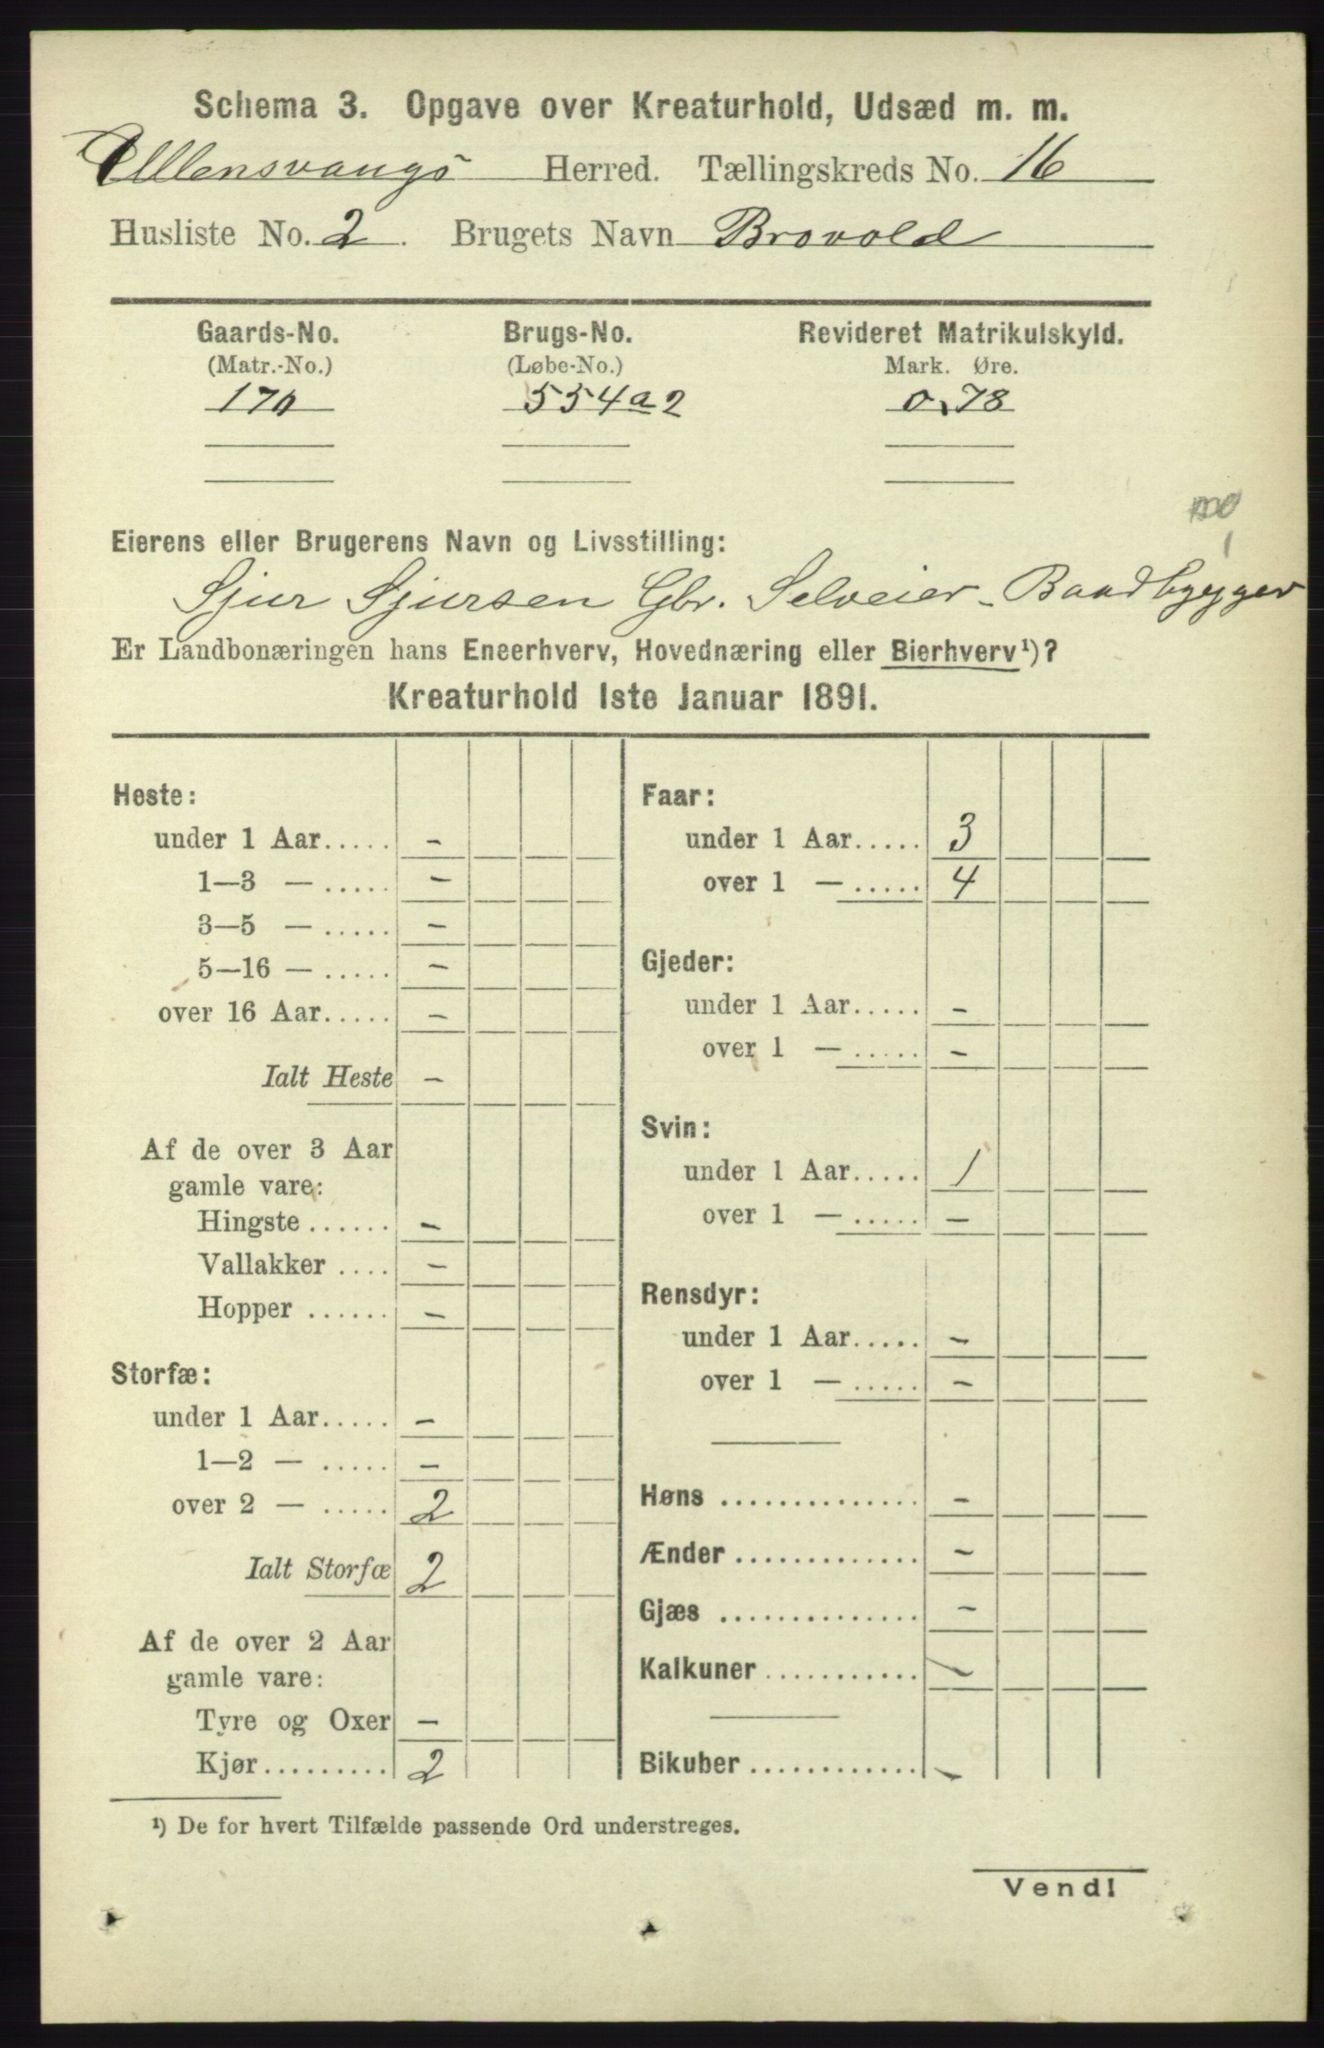 Schema 3. Opgave over Kreaturhold, Udsæd m. m.
Ullensvangs Herred. Tællingskreds No. 16
Husliste No. 2. Brugets Navn Brovold
Gaards-No. Brugs-No. Revideret Matrikulskyld.
(Matr.-No.) (Løbe-No.) Mark. Øre.
170 554a2 0.78
Eierens eller Brugerens Navn og Livsstilling:
Sjur Sjursen Gbr. Selveier - Baadbygger
Er Landbonæringen hans Eneerhverv, Hovednæring eller Bierhverv¹)?
Kreaturhold 1ste Januar 1891.
Heste:
under 1 Aar..... -
1—3 — ..... -
3—5 — ..... -
5—16 — ..... -
over 16 Aar..... -
Ialt Heste -
Af de over 3 Aar
gamle vare:
Hingste ...... -
Vallakker .... -
Hopper ...... -
Storfæ:
under 1 Aar..... -
1—2 — ..... -
over 2 — ..... 2
Ialt Storfæ 2
Af de over 2 Aar
gamle vare:
Tyre og Oxer -
Kjør......... 2
Faar:
under 1 Aar..... 3
over 1 — ..... 4
Gjeder:
under 1 Aar..... -
over 1 — ..... -
Svin:
under 1 Aar..... 1
over 1 — ..... -
Rensdyr:
under 1 Aar..... -
over 1 — ..... -
Høns ............... -
Ænder .............. -
Gjæs ............... -
Kalkuner ........... -
Bikuber ............ -
¹) De for hvert Tilfælde passende Ord understreges.
Vend!